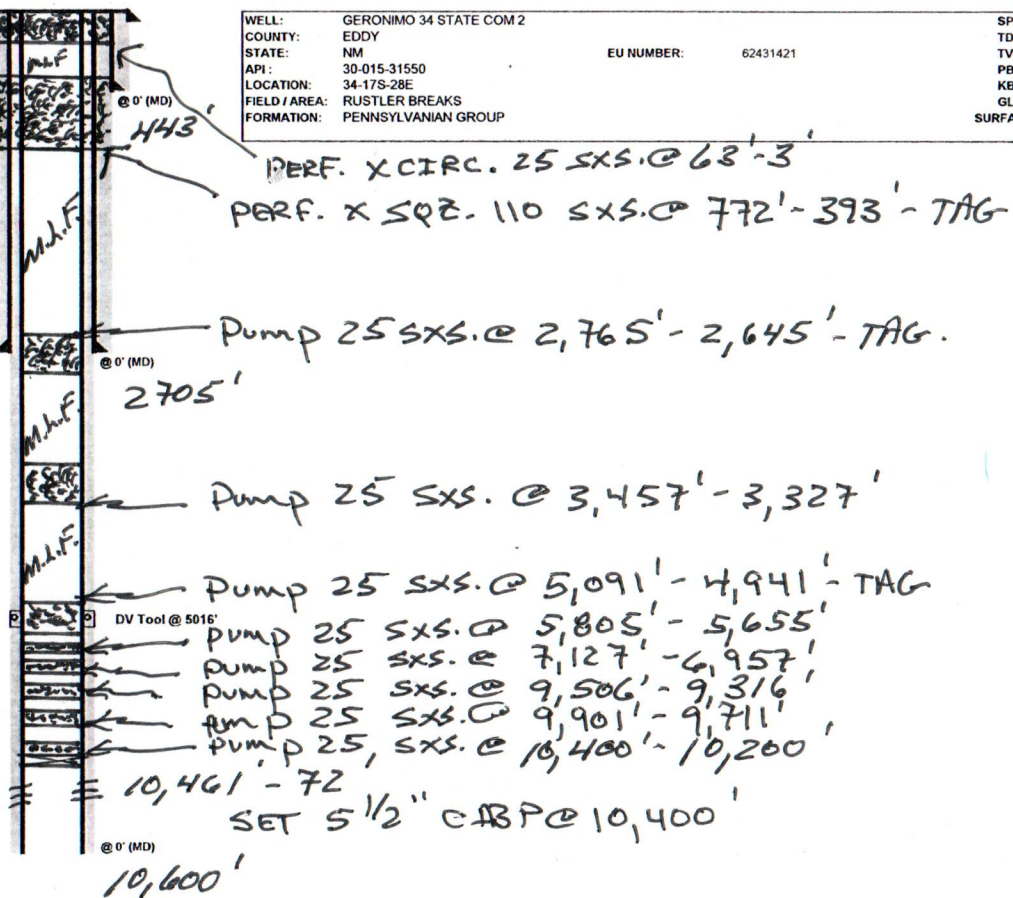 WELL: GERONIMO 34 STATE COM 2 SP
COUNTY: EDDY TD
STATE: NM EU NUMBER: 62431421 TV
API : 30-015-31550 PB
LOCATION: 34-17S-28E KB
FIELD / AREA: RUSTLER BREAKS GL
FORMATION: PENNSYLVANIAN GROUP SURFA
M.L.F
@ 0' (MD)
443'
PERF. X CIRC. 25 SXS. @ 63'-3'
PERF. X SQZ. 110 SXS. @ 772'-393'- TAG
M.L.F.
Pump 25 SXS. @ 2,765'- 2,645'- TAG.
@ 0' (MD)
2705'
M.L.F.
Pump 25 SXS. @ 3,457'- 3,327'
M.L.F.
Pump 25 SXS. @ 5,091'- 4,941'- TAG
DV Tool @ 5016'
pump 25 SXS. @ 5,805'- 5,655'
pump 25 SXS. @ 7,127'- 6,957'
pump 25 SXS. @ 9,506'- 9,316'
pump 25 SXS. @ 9,901'- 9,711'
pump 25, SXS. @ 10,400'- 10,200'
10,461'- 72
SET 5 1/2" CIBP @ 10,400'
@ 0' (MD)
10,600'